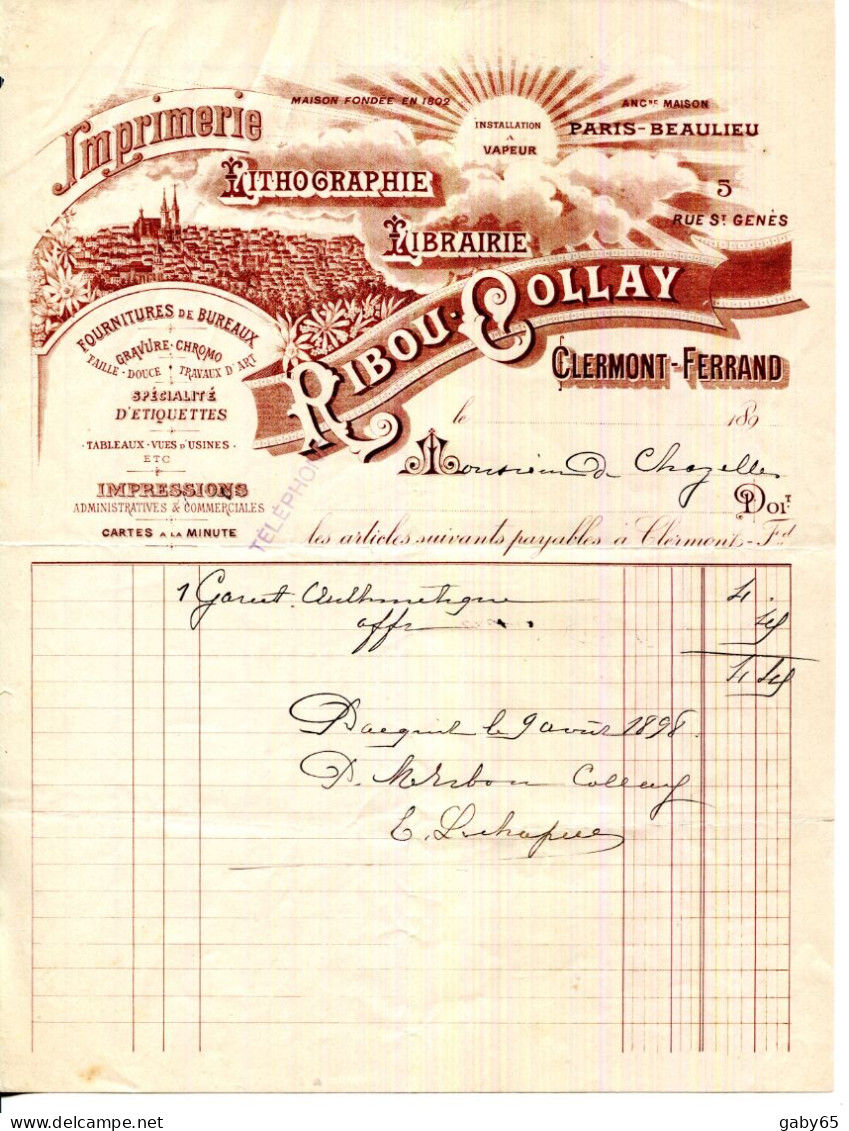 Imprimerie
MAISON FONDÉE EN 1802
INSTALLATION
A
VAPEUR
ANCNE MAISON
PARIS-BEAULIEU
LITHOGRAPHIE
LIBRAIRIE
5
RUE ST GENÈS
RIBOU-COLLAY
CLERMONT-FERRAND
FOURNITURES DE BUREAUX
GRAVURE-CHROMO
TAILLE-DOUCE TRAVAUX D'ART
SPÉCIALITÉ
D'ETIQUETTES
TABLEAUX-VUES D'USINES
ETC
IMPRESSIONS
ADMINISTRATIVES & COMMERCIALES
CARTES A LA MINUTE
TÉLÉPHON
le 189
Monsieur de Chazelles
DOIT
les articles suivants payables à Clermont-Fd
1 Garcet Arithmétique 4 .
affr 45
4 45
Pacquit le 9 août 1898
P. Mr Ribou Collay